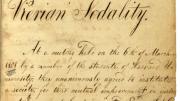 Pierian Sodality.
At a meeting held on the 6th of March
1808 by a number of the students of Harvard Uni-
versity, they unanimously agreed to institute
a society, for their mutual improvement in